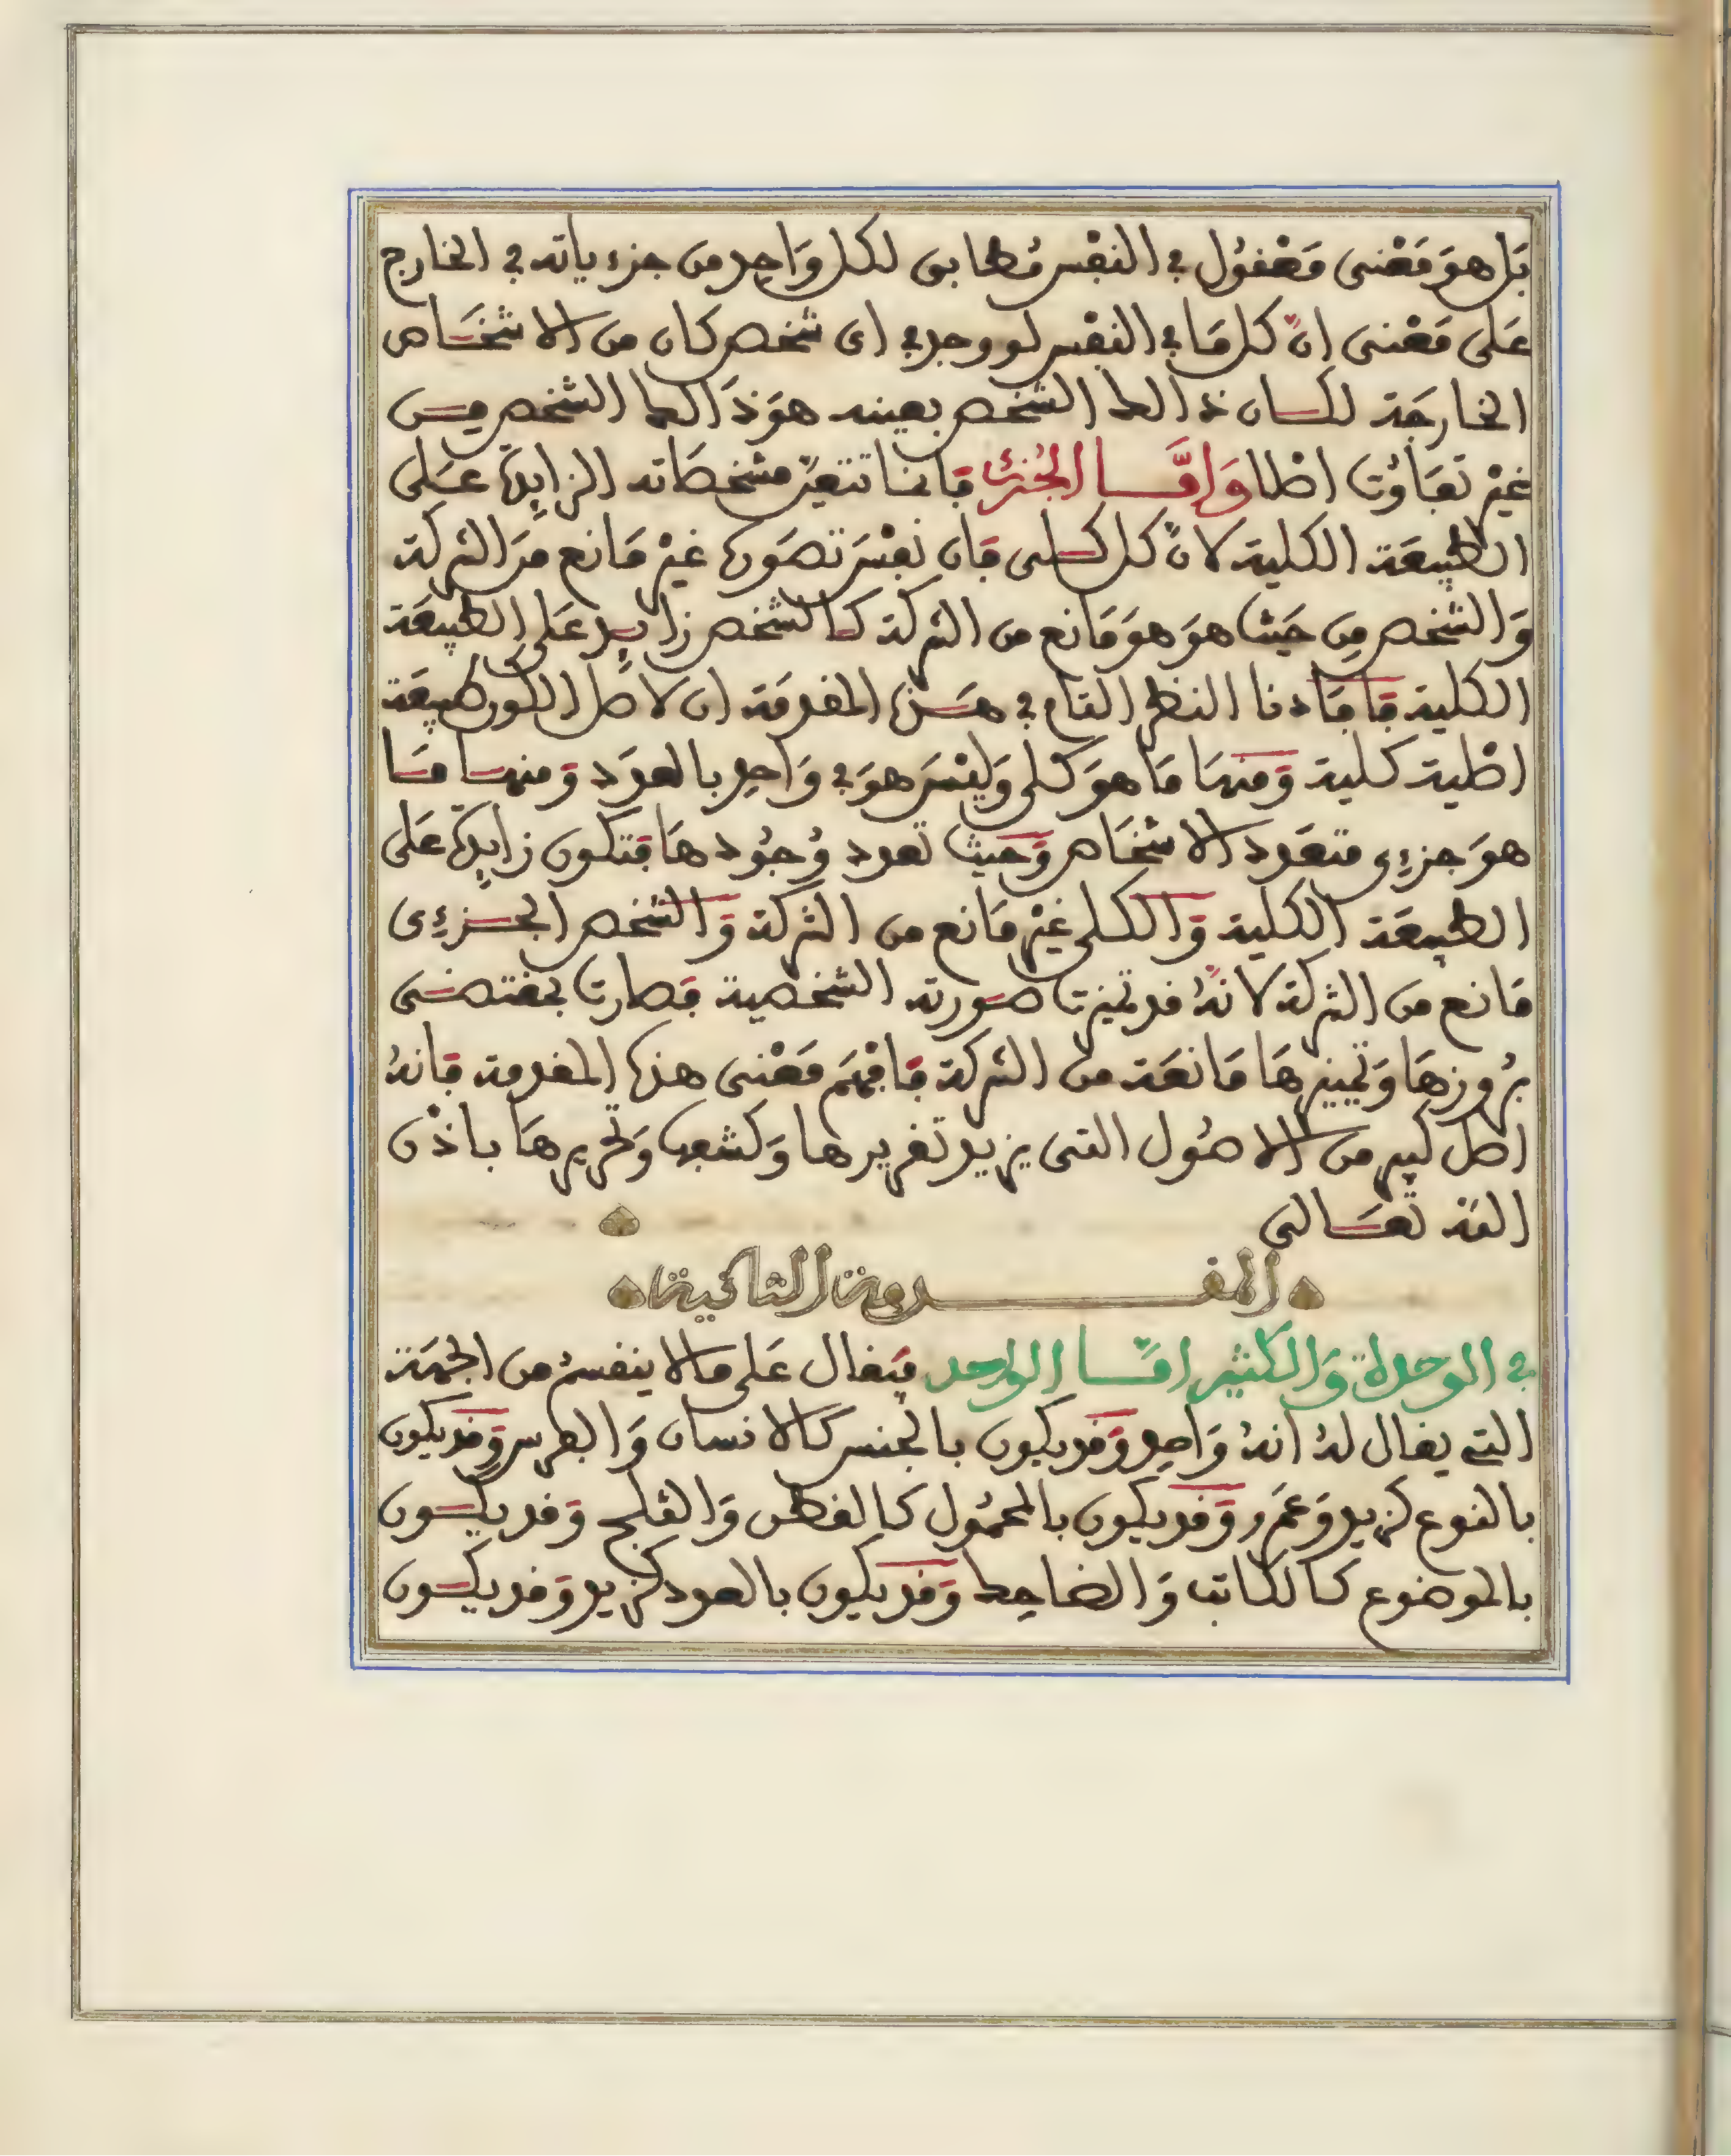 بَل هوَ مَعْنى مَعْقُول في النفْس مُطابق لكل وَاحِد من جزءياته في الخارج
عَلى مَعْنى انّ كل مَا في النفْس لو وجد في اى شخص كان من الاشخَاص
الخارجَة لكان ذالك الشخص بعينه هوَ ذَالك الشخص مِن
غيْر تفَاوُت اصْلا وَامَّا الجُزئى فانما تتعيّن مشخصَاته الزايِدة عَلى
الطبِيعَة الكلية لانّ كل كلى فان نفْسَ تصَوره غيْر مَانع مَن الشركة
وَالشخص مِن حَيث هوَ هوَ مَانع من الشركة كالشخص زايِد عَلى الطبِيعَة
الكلية فافَادنا النظر التام في هَذه المقدمَة ان لاصل الكون طبِيعَة
اصْلية كلية وَمنهَا مَا هوَ كلى وَليْسَ هوَ في وَاحِد بالعدَد وَمنهَا مَا
هوَ جزءِى متعَدد الاشخَاص وَحَيث تعدد وُجُودهَا فتكون زايِدة عَلى
الطبِيعَة الكلية وَالكلى غيْر مَانع من الشركة وَالشخص الجزءِى
مَانع من الشركة لانهُ قد تميزت صَورته الشخصية فصارت بمقتضَى
بُروزهَا وَتمييزهَا مَانعَة من الشركة فافْهَم مَعْنى هذه المقدمة فانهُ
اصل كبير من الاصُول التى يزيد تقريرها وَكشفها وَتحريرهَا باذْن
الله تعَالى
المقدمة الثانية
في الوحدة وَالكثير امّا الواحد فيَقال عَلى مالا ينقسمُ من الجهَة
التى يقال لهُ انهُ وَاحِد وَقد يكون بالجنس كالانسان وَالفرس وَقد يكون
بالنوع كزيد وَعَمَرو وَقد يكون بالمحمُول كالقطن وَالثلج وَقد يكون
بالموضوع كالكاتب وَالضاحِك وَقد يكون بالعدد كزيد وَقد يكون